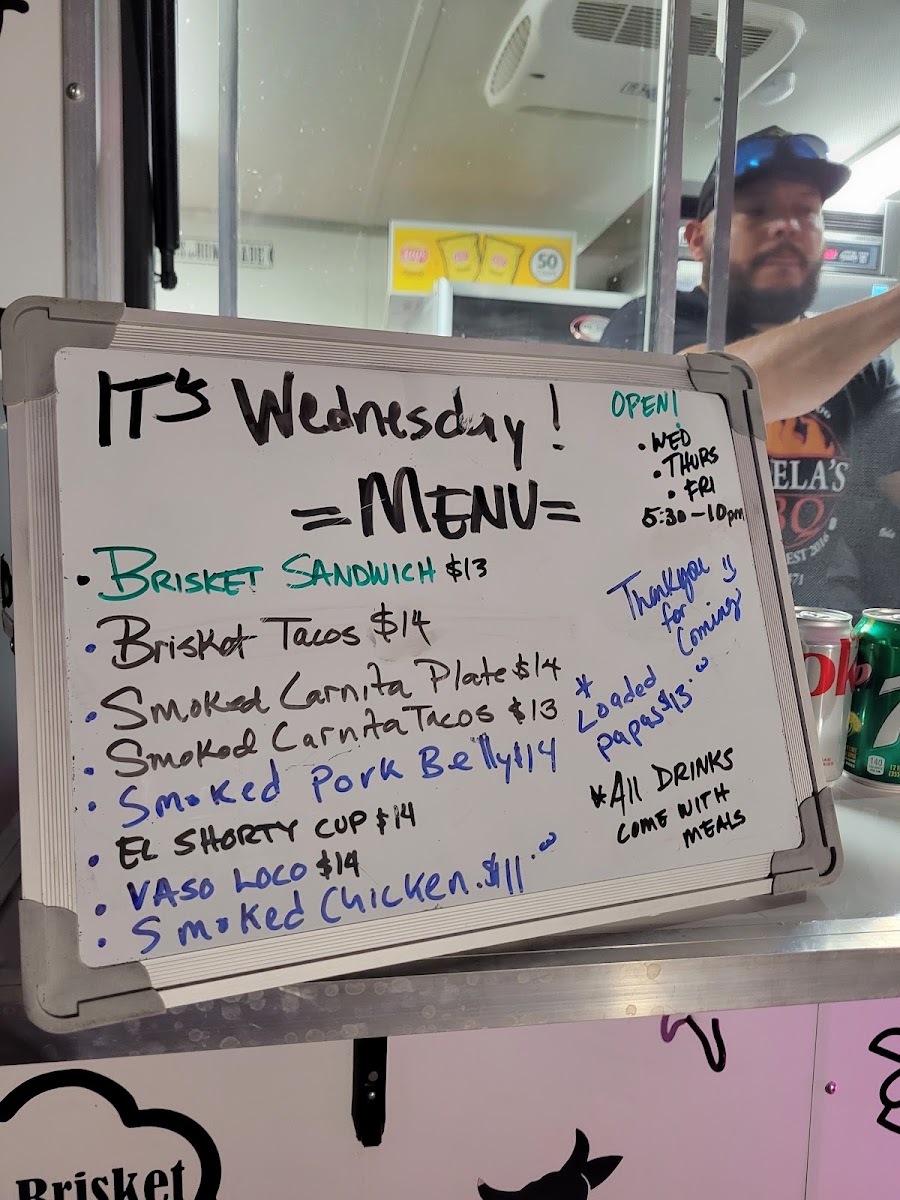 50
IT's Wednesday!
= MENU =
• BRISKET SANDWICH $13
• Brisket Tacos $14
• Smoked Carnita Plate $14
• Smoked Carnita Tacos $13
• Smoked Pork Belly $14
• EL SHORTY CUP $14
• VASO LOCO $14
• Smoked Chicken. $11.00
OPEN!
• WED
• THURS
• FRI
5:30-10pm
Thankyou
for
Coming
* Loaded
papas $13.00
*All DRINKS
COME WITH
MEALS
ELA'S
7
Brisket